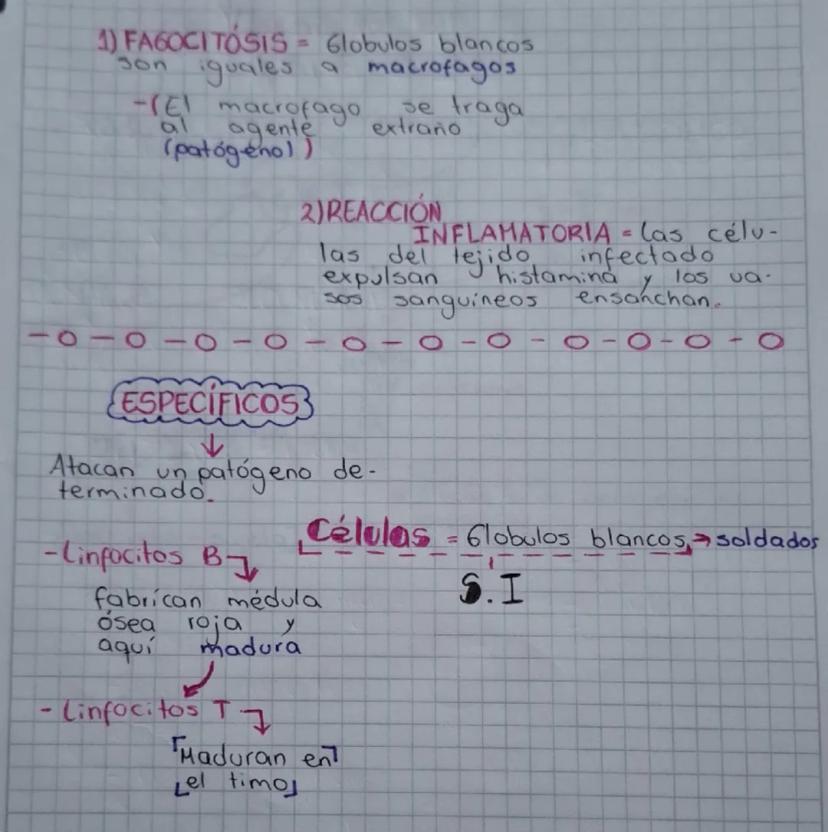 1) FAGOCITÓSIS = Globulos blancos
son iguales a macrofagos
-(El macrofago se traga
al agente extraño
(patógeno))
2) REACCIÓN
INFLAMATORIA = Las célu-
las del tejido infectado
expulsan histamina y los va-
sos sanguíneos ensanchan.
ESPECÍFICOS
Atacan un patógeno de-
terminado.
Células = Globulos blancos → soldados
S.I
- Linfocitos B
fabrican médula
ósea roja y
aquí madura
- Linfocitos T
Maduran en
el timo